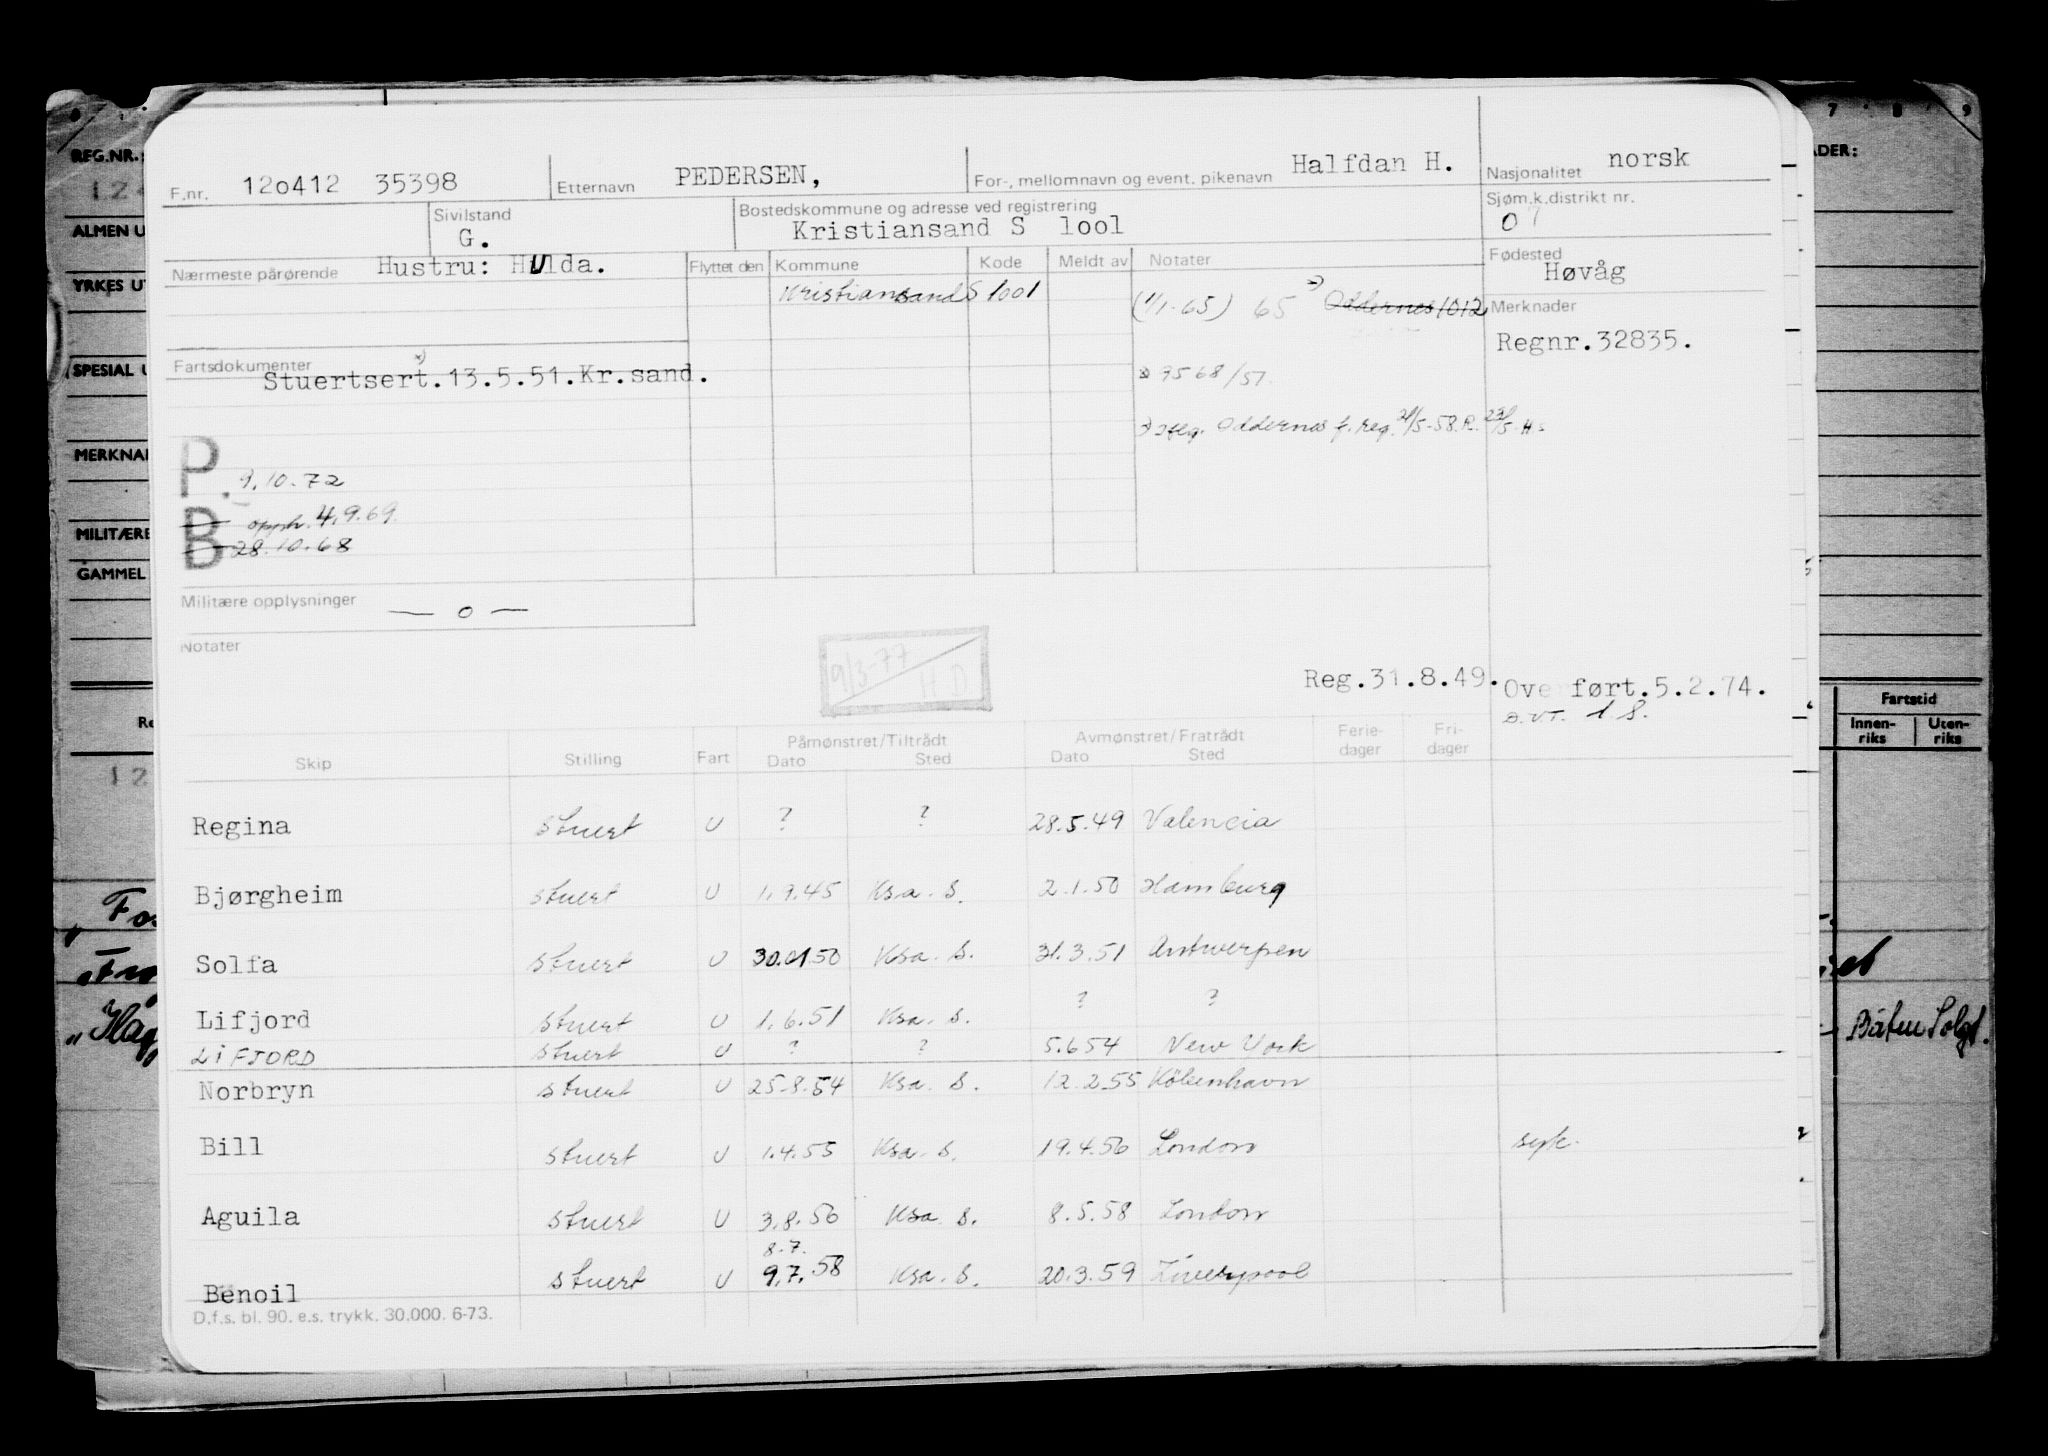 F.nr. 12o412 35398 Etternavn PEDERSEN, For-, mellomnavn og event. pikenavn Halfdan H. Nasjonalitet norsk
Sivilstand G. Bostedskommune og adresse ved registrering Kristiansand S lool Sjøm.k.distrikt nr. 07
Nærmeste pårørende Hustru: Hulda. Flyttet den Kommune Kode Meldt av Notater Fødested Høvåg
Kristiansand S 1001 (1/1-65) 65 Oddernes 1012 Merknader
Regnr.32835.
Fartsdokumenter
Stuertsert.13.5.51.Kr.sand. 9568/57
Oddernes f. reg. 21/5-58.R.
P. 9.10.72
opph. 4.9.69
B 28.10.68
Militære opplysninger — o —
Notater
9/3-77 H D
Reg.31.8.49. Overført.5.2.74.
1 S.
Skip Stilling Fart Påmønstret/Tiltrådt Dato Sted Avmønstret/Fratrådt Dato Sted Ferie-dager Fri-dager
Regina stuert U ? ? 28.5.49 Valencia
Bjørgheim stuert U 1.9.45 Ksa. S. 2.1.50 Hamburg
Solfa stuert U 30.01.50 Ksa. S. 31.3.51 Antwerpen
Lifjord stuert U 1.6.51 Ksa. S. ? ?
LIFJORD stuert U ? ? 5.6.54 New York
Norbryn stuert U 25.8.54 Ksa. S. 12.2.55 København
Bill stuert U 1.4.55 Ksa. S. 19.4.56 London syk.
Aguila stuert U 3.8.56 Ksa. S. 8.5.58 London
8.7.
Benoil stuert U 9.7.58 Ksa. S. 20.3.59 Liverpool
D.f.s. bl. 90. e.s. trykk. 30.000. 6-73.
REG.NR.:
ALMEN U
YRKES UT
SPESIAL U
MERKNAD
MILITÆRE
GAMMEL
7 8 9
ADER:
Fartstid
Innen-riks Uten-riks
Båten Solgt.